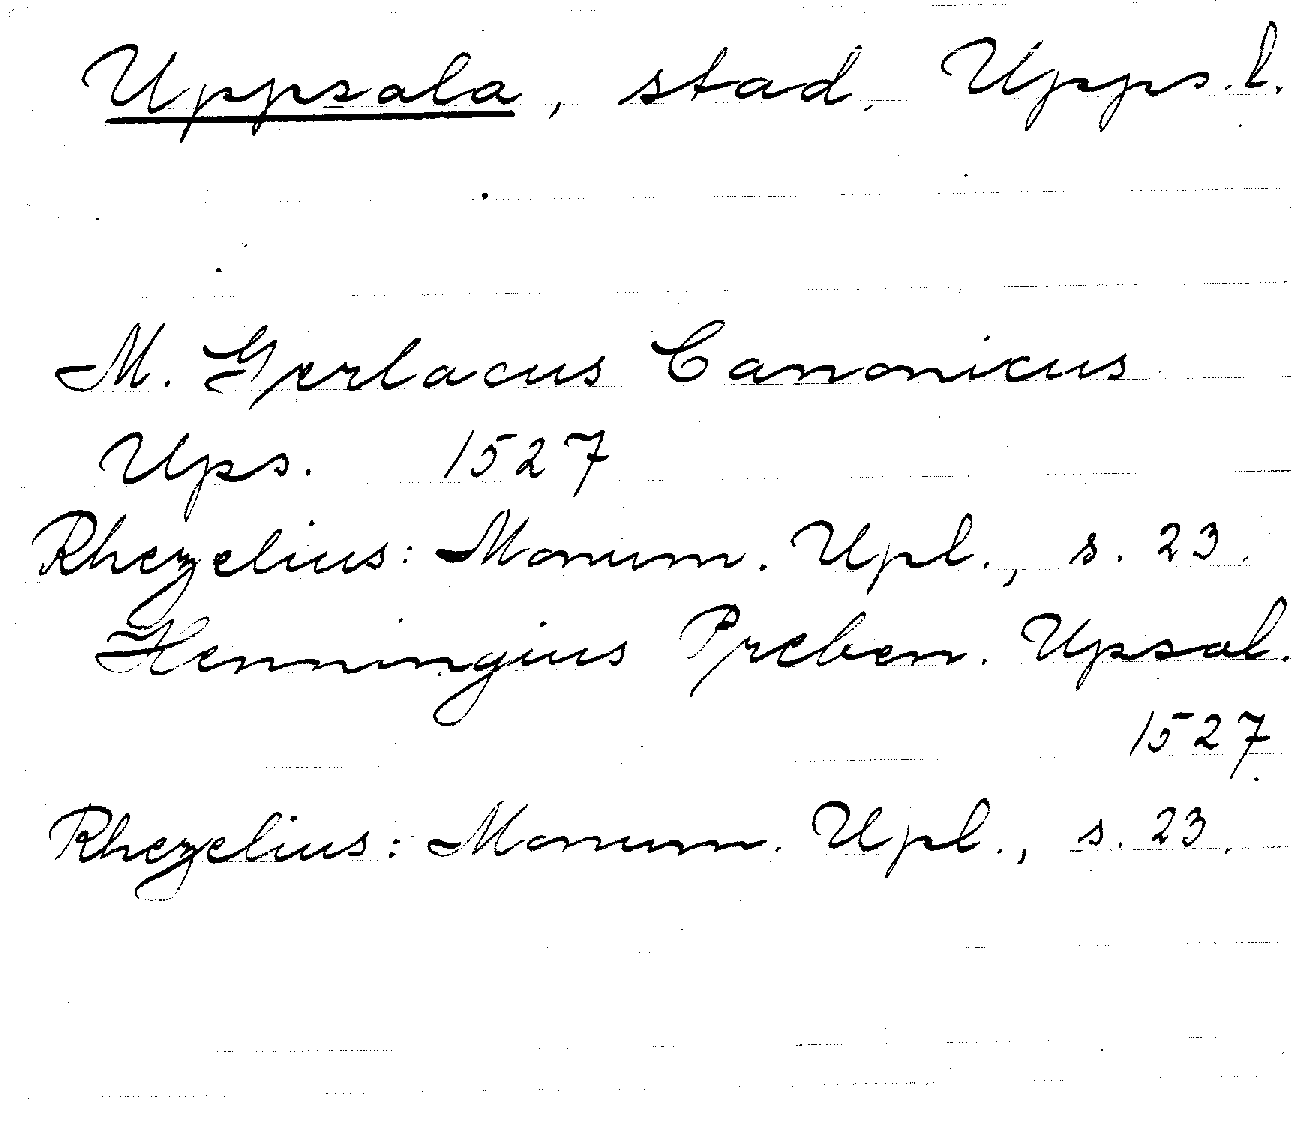 Uppsala, stad. Upps. l.
M. Gerlacus Canonicus
Ups. 1527
Rhezelius: Monum. Upl., s. 23.
Henningius Preben. Upsal.
1527
Rhezelius: Monum. Upl., s. 23.